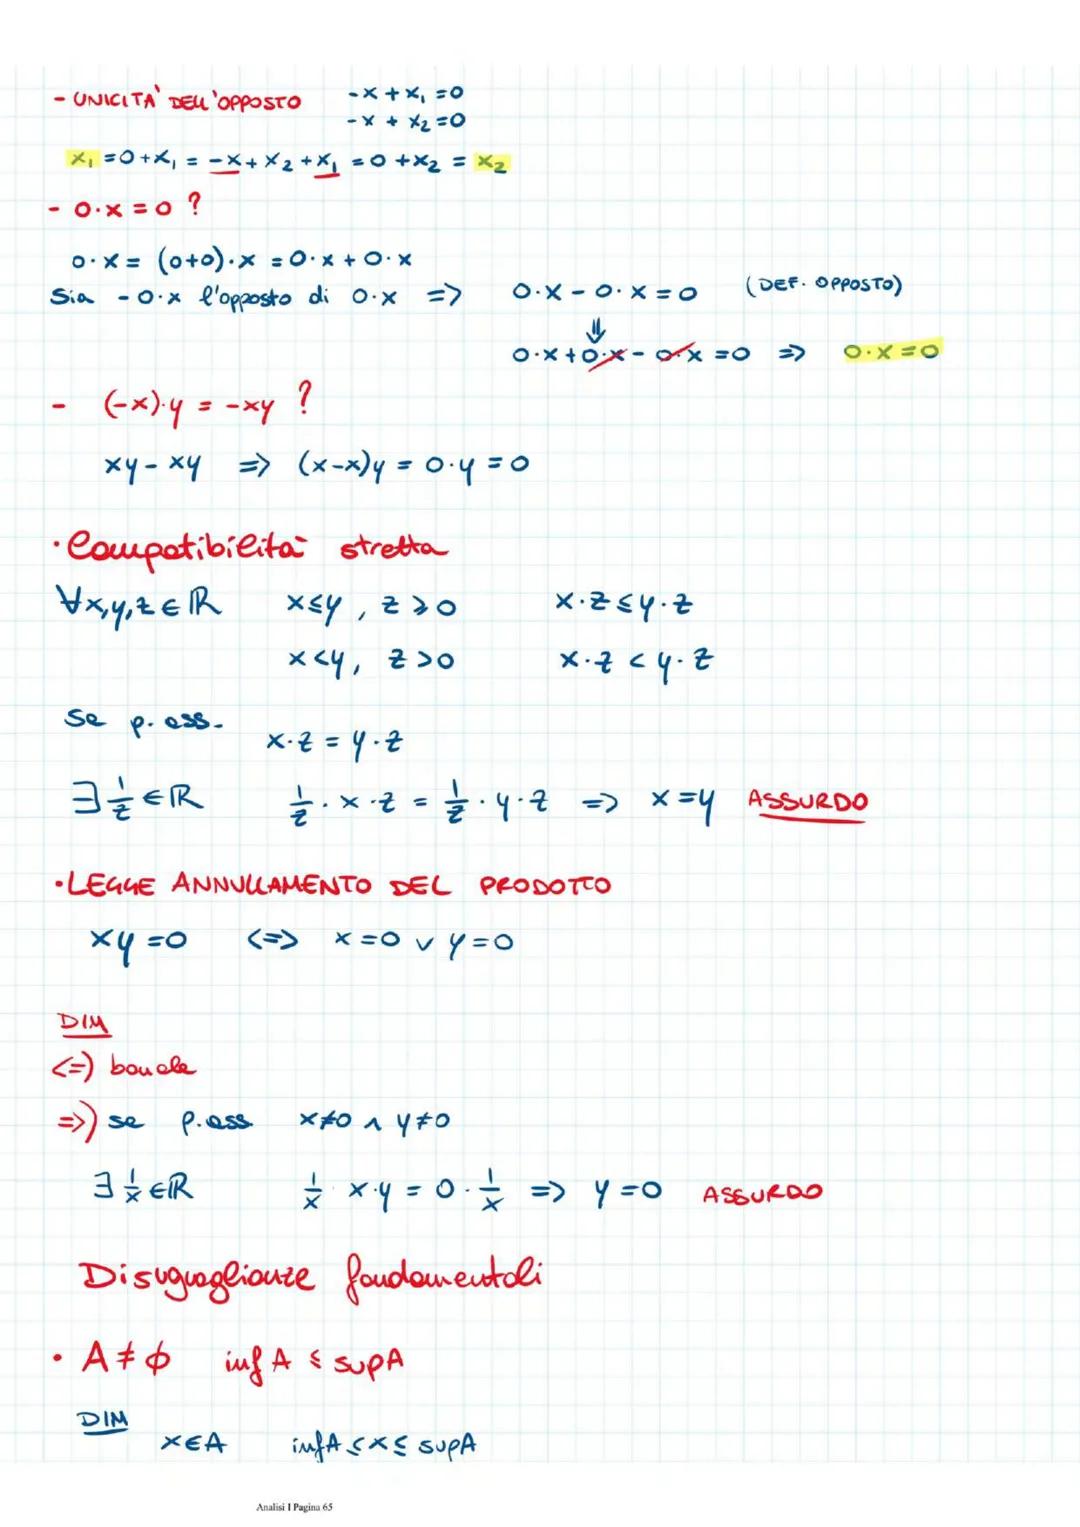 - UNICITA' DELL'OPPOSTO -x + x₁ = 0
-x + x₂ = 0
x₁ = 0 + x₁ = -x + x₂ + x₁ = 0 + x₂ = x₂
- 0·x = 0 ?
0·x = (0+0)·x = 0·x + 0·x
Sia -0·x l'opposto di 0·x => 0·x - 0·x = 0 (DEF. OPPOSTO)
⇓
0·x + 0·x - 0·x = 0 => 0·x = 0
- (-x)·y = -xy ?
xy - xy => (x-x)y = 0·y = 0
· Compatibilità stretta
∀x,y,z ∈ ℝ x ≤ y , z ≥ 0 x·z ≤ y·z
x < y, z > 0 x·z < y·z
Se p. ass. x·z = y·z
∃ 1/z ∈ ℝ 1/z · x · z = 1/z · y · z => x = y ASSURDO
· LEGGE ANNULLAMENTO DEL PRODOTTO
xy = 0 <=> x = 0 ∨ y = 0
DIM
<=) banale
=>) se p. ass x ≠ 0 ∧ y ≠ 0
∃ 1/x ∈ ℝ 1/x · x·y = 0 · 1/x => y = 0 ASSURDO
Disuguaglianze fondamentali
· A ≠ ϕ inf A ≤ sup A
DIM
x ∈ A inf A ≤ x ≤ sup A
Analisi I Pagina 65